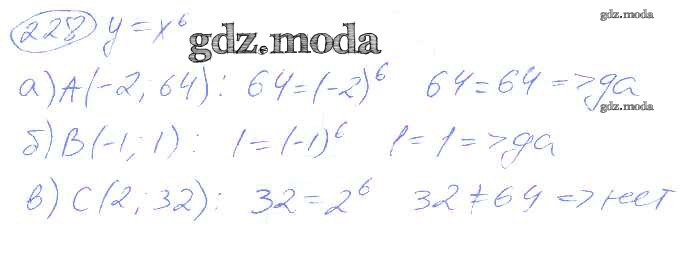 228 y = x⁶
gdz.moda
gdz.moda
а) A(-2; 64): 64 = (-2)⁶ 64 = 64 => да
gdz.moda
б) B(-1; 1): 1 = (-1)⁶ 1 = 1 => да
в) C(2; 32): 32 = 2⁶ 32 ≠ 64 => нет